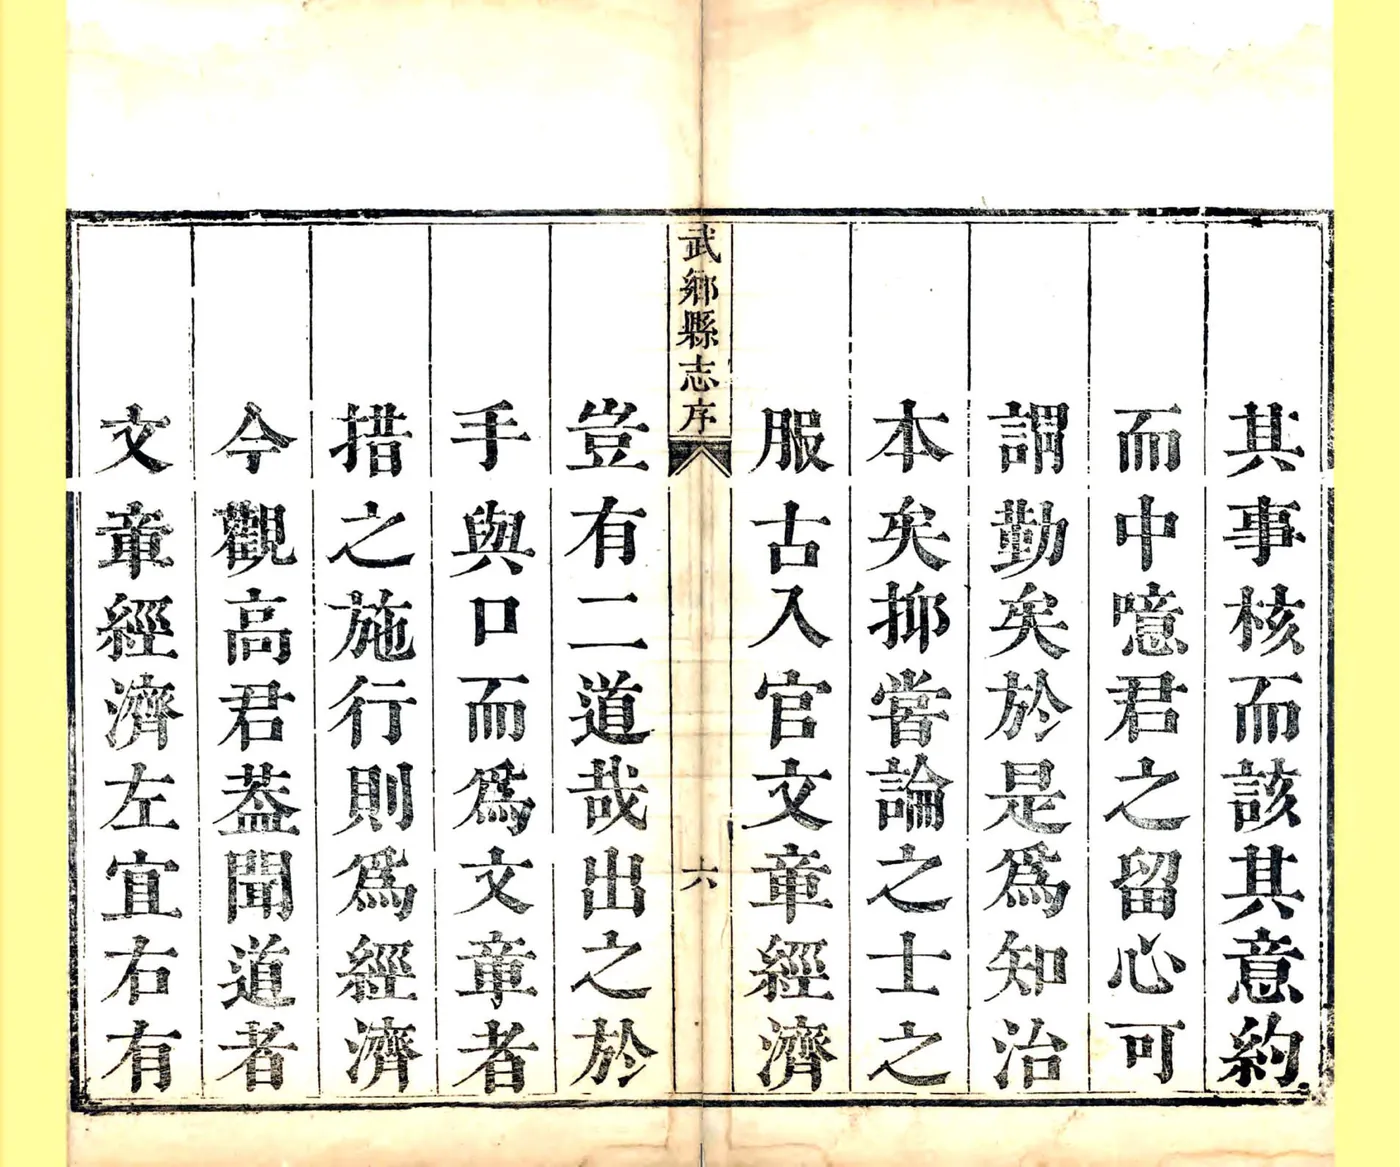 其事核而該其意約
而中噫君之留心可
謂勤矣於是爲知治
本矣抑嘗論之士之
服古入官文章經濟
武鄉縣志序
六
豈有二道哉出之於
手與口而爲文章者
措之施行則爲經濟
今觀高君蓋聞道者
文章經濟左宜右有